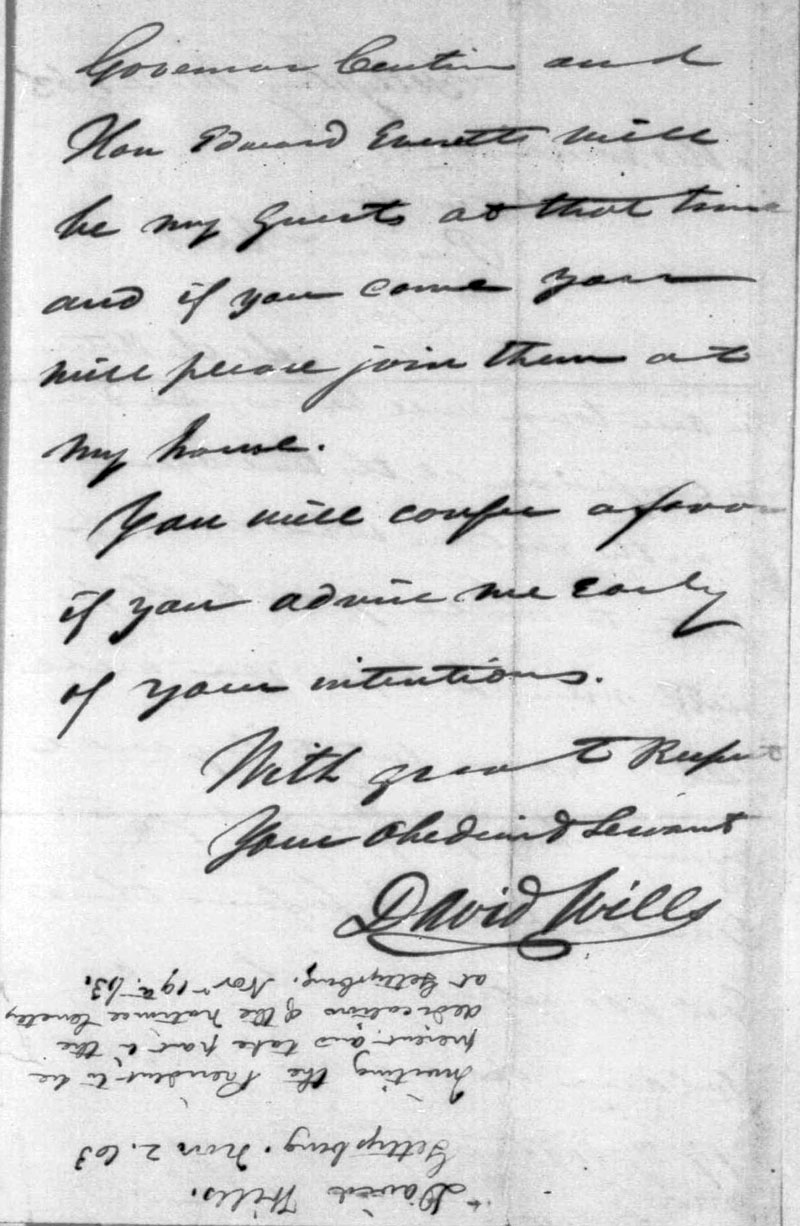 Governor Curtin and
Hon Edward Everett will
be my guests at that time
and if you come you
will please join them at
my house.
You will confer a favor
if you advise me early
of your intentions.
With great Respect
Your Obedient Servant
David Wills
David Wills.
Gettysburg. Nov 2. 63
Inviting the President to be
present and take part in the
dedication of the National Cemetery
at Gettysburg. Nov 19th 63.